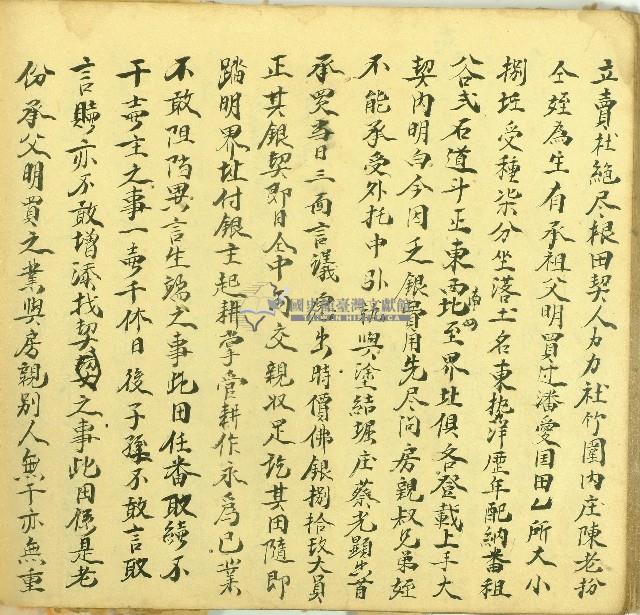 立賣杜絕尽根田契人力力社竹圍内庄陳老扮
仝姪為生有承祖父明買过潘愛国田乙所大小
捌坵受種柒分坐落土名東勢洋歷年配納番租
谷弍石道斗正東西南北四至界址俱各登載上手大
契内明白今因乏銀費用先尽问房親叔兄弟姪
不能承受外托中引就與塗結堀庄蔡光顕出首
承買当日三面言議為出時價佛銀捌拾玖大員
正其銀契即日仝中交親収足訖其田隨即
踏明界址付銀主起耕掌管耕作永為己業
不敢阻擋異言生端之事此田任番取続不
干壱主之事一壱千休日後子孫不敢言取
言贖亦不敢增添找契之事此田係是老
份承父明買之業與房親别人無干亦無重
國史館臺灣文獻館